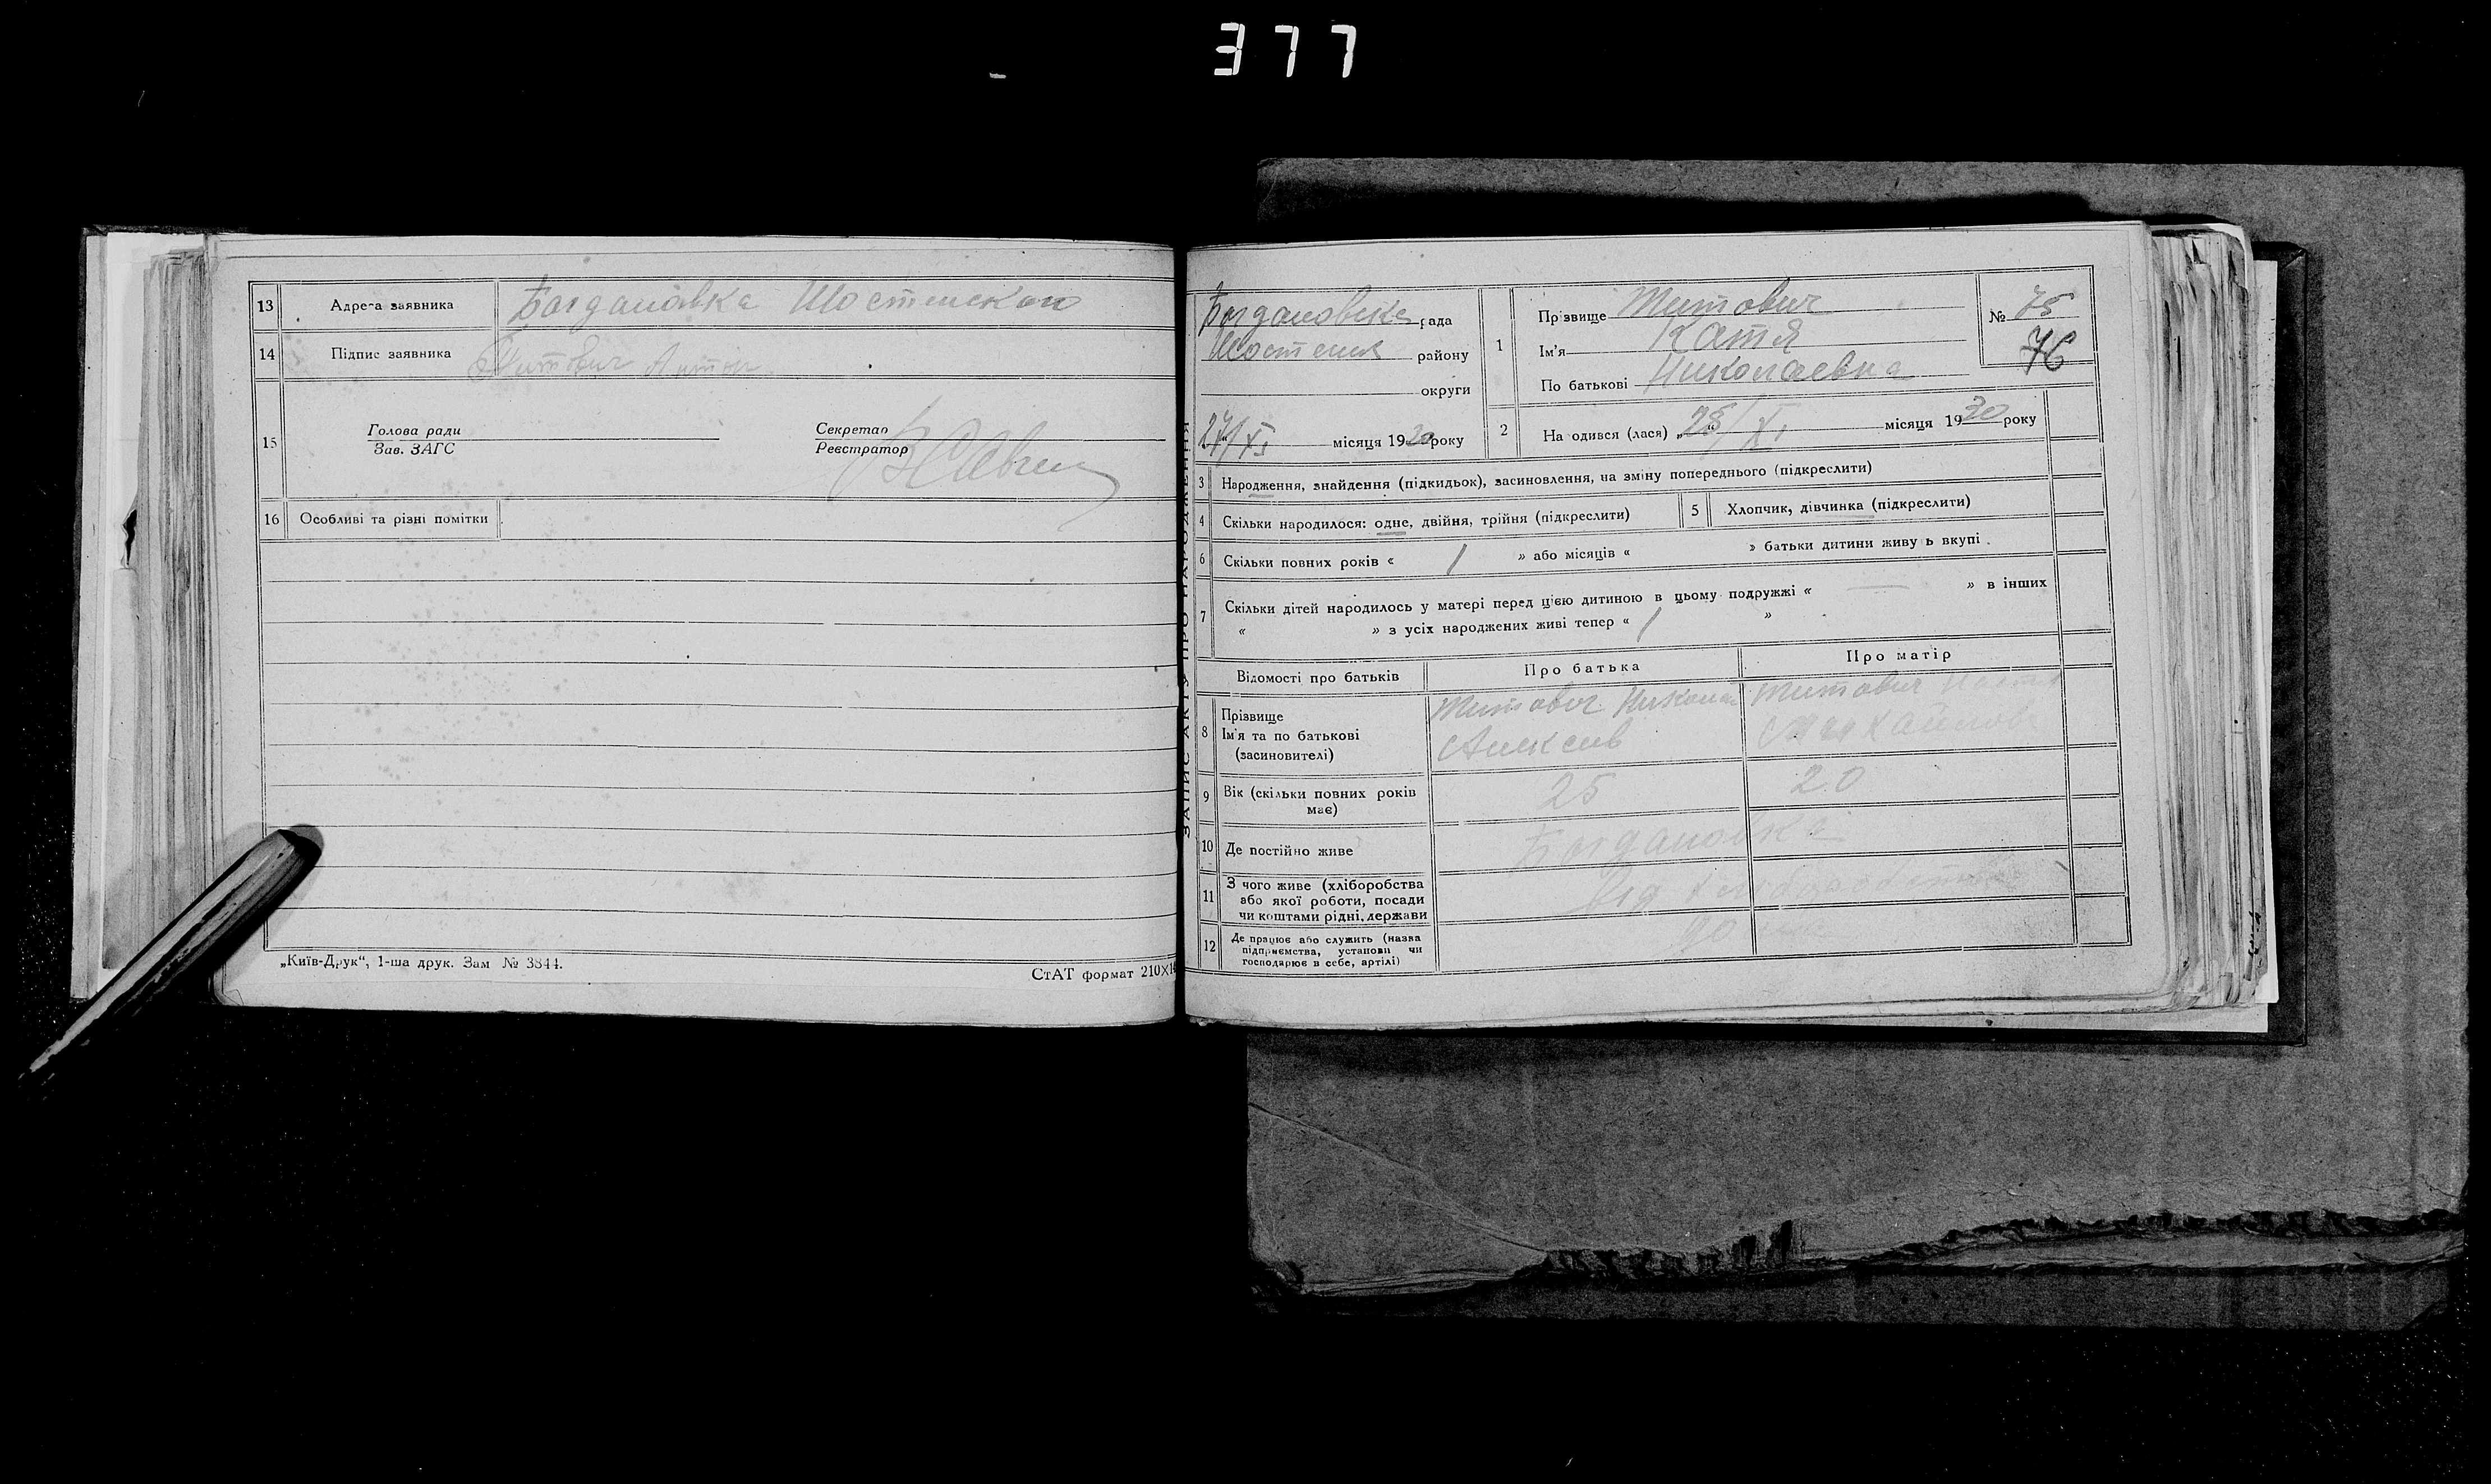 377
13 Адреса заявника Богдановка Шостенского
14 Підпис заявника Титович
15 Голова ради
Зав. ЗАГС
Секретар
Реєстратор
16 Особливі та різні помітки
„Київ-Друк“, 1-ша друк. Зам № 3844.
СтАТ формат 210×14
ЗАПИС АКТУ ПРО НАРОДЖЕННЯ
Богдановска рада
Шостенск району
округи
27/XI місяця 1930 року
1 Прізвище Титович
Ім'я Катя
По батькові Николаевна
№ 75
76
2 На одився (лася) „25/XI місяця 1930 року
3 Народження, знайдення (підкидьок), засиновлення, на зміну попереднього (підкреслити)
4 Скільки народилося: одне, двійня, трійня (підкреслити)
5 Хлопчик, дівчинка (підкреслити)
6 Скільки повних років « 1 » або місяців « » батьки дитини живу ь вкупі
7 Скільки дітей народилось у матері перед цією дитиною в цьому подружжі « — » в інших
« » з усіх народжених живі тепер « 1 »
Відомості про батьків Про батька Про матір
8 Прізвище
Ім'я та по батькові
(засиновителі)
Титович Николай
Алексеев
Титович
Михайлов
9 Вік (скільки повних років
має)
25 20
10 Де постійно живе Богдановка
11 З чого живе (хліборобства
або якої роботи, посади
чи коштами рідні, держави
від
12 Де працює або служить (назва
підприємства, установи чи
господарює в себе, артілі)